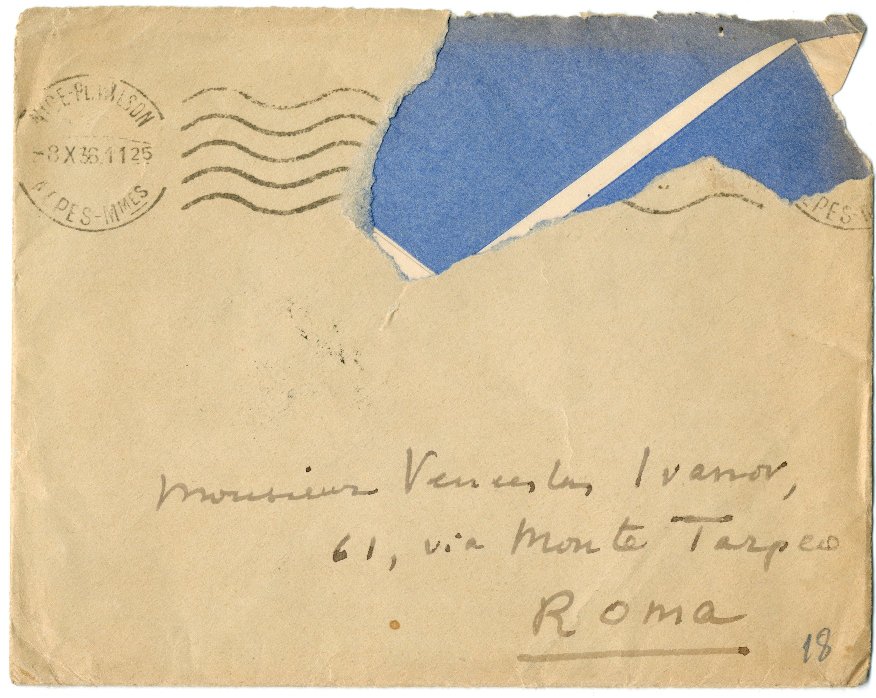 NICE-PL. WILSON
-8 X 36. 11 25
ALPES-MMES
ALPES-M
Monsieur Venceslas Ivanov,
61, via Monte Tarpeo
Roma
18